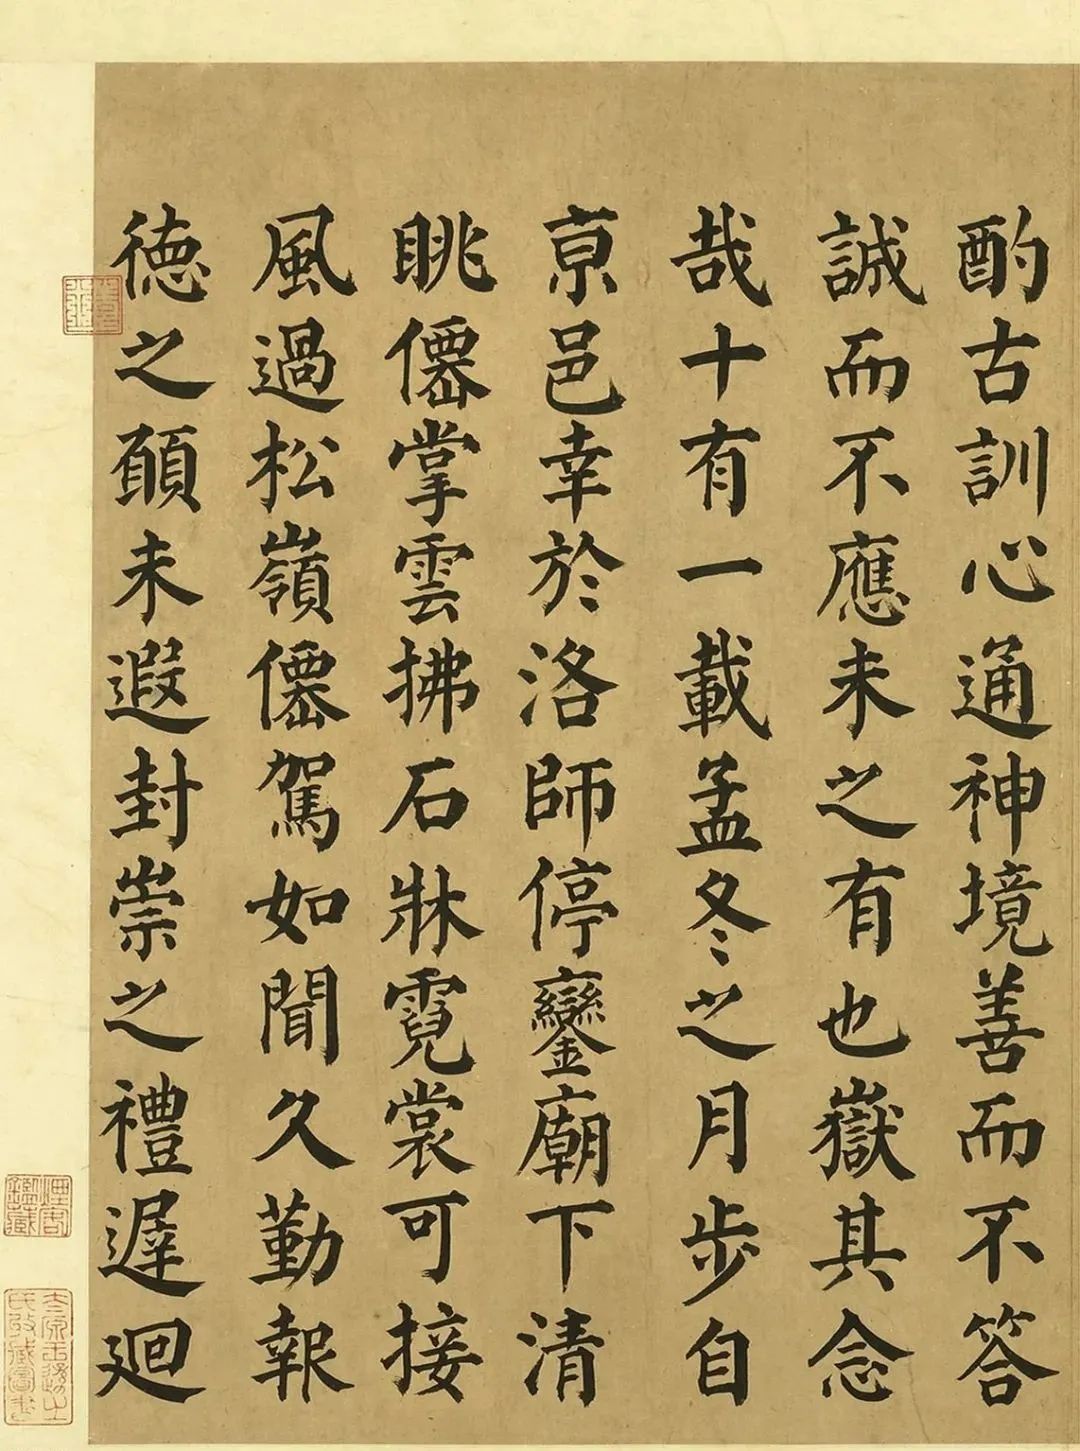 酌古訓心通神境善而不答
誠而不應未之有也嶽其念
哉十有一載孟冬之月步自
亰邑幸於洛師停鑾廟下清
眺僊掌雲拂石牀霓裳可接
風過松嶺僊駕如聞久勤報
徳之願未遐封崇之禮遲廻
煙客
鑑藏
太原王遜之
氏收藏圖書